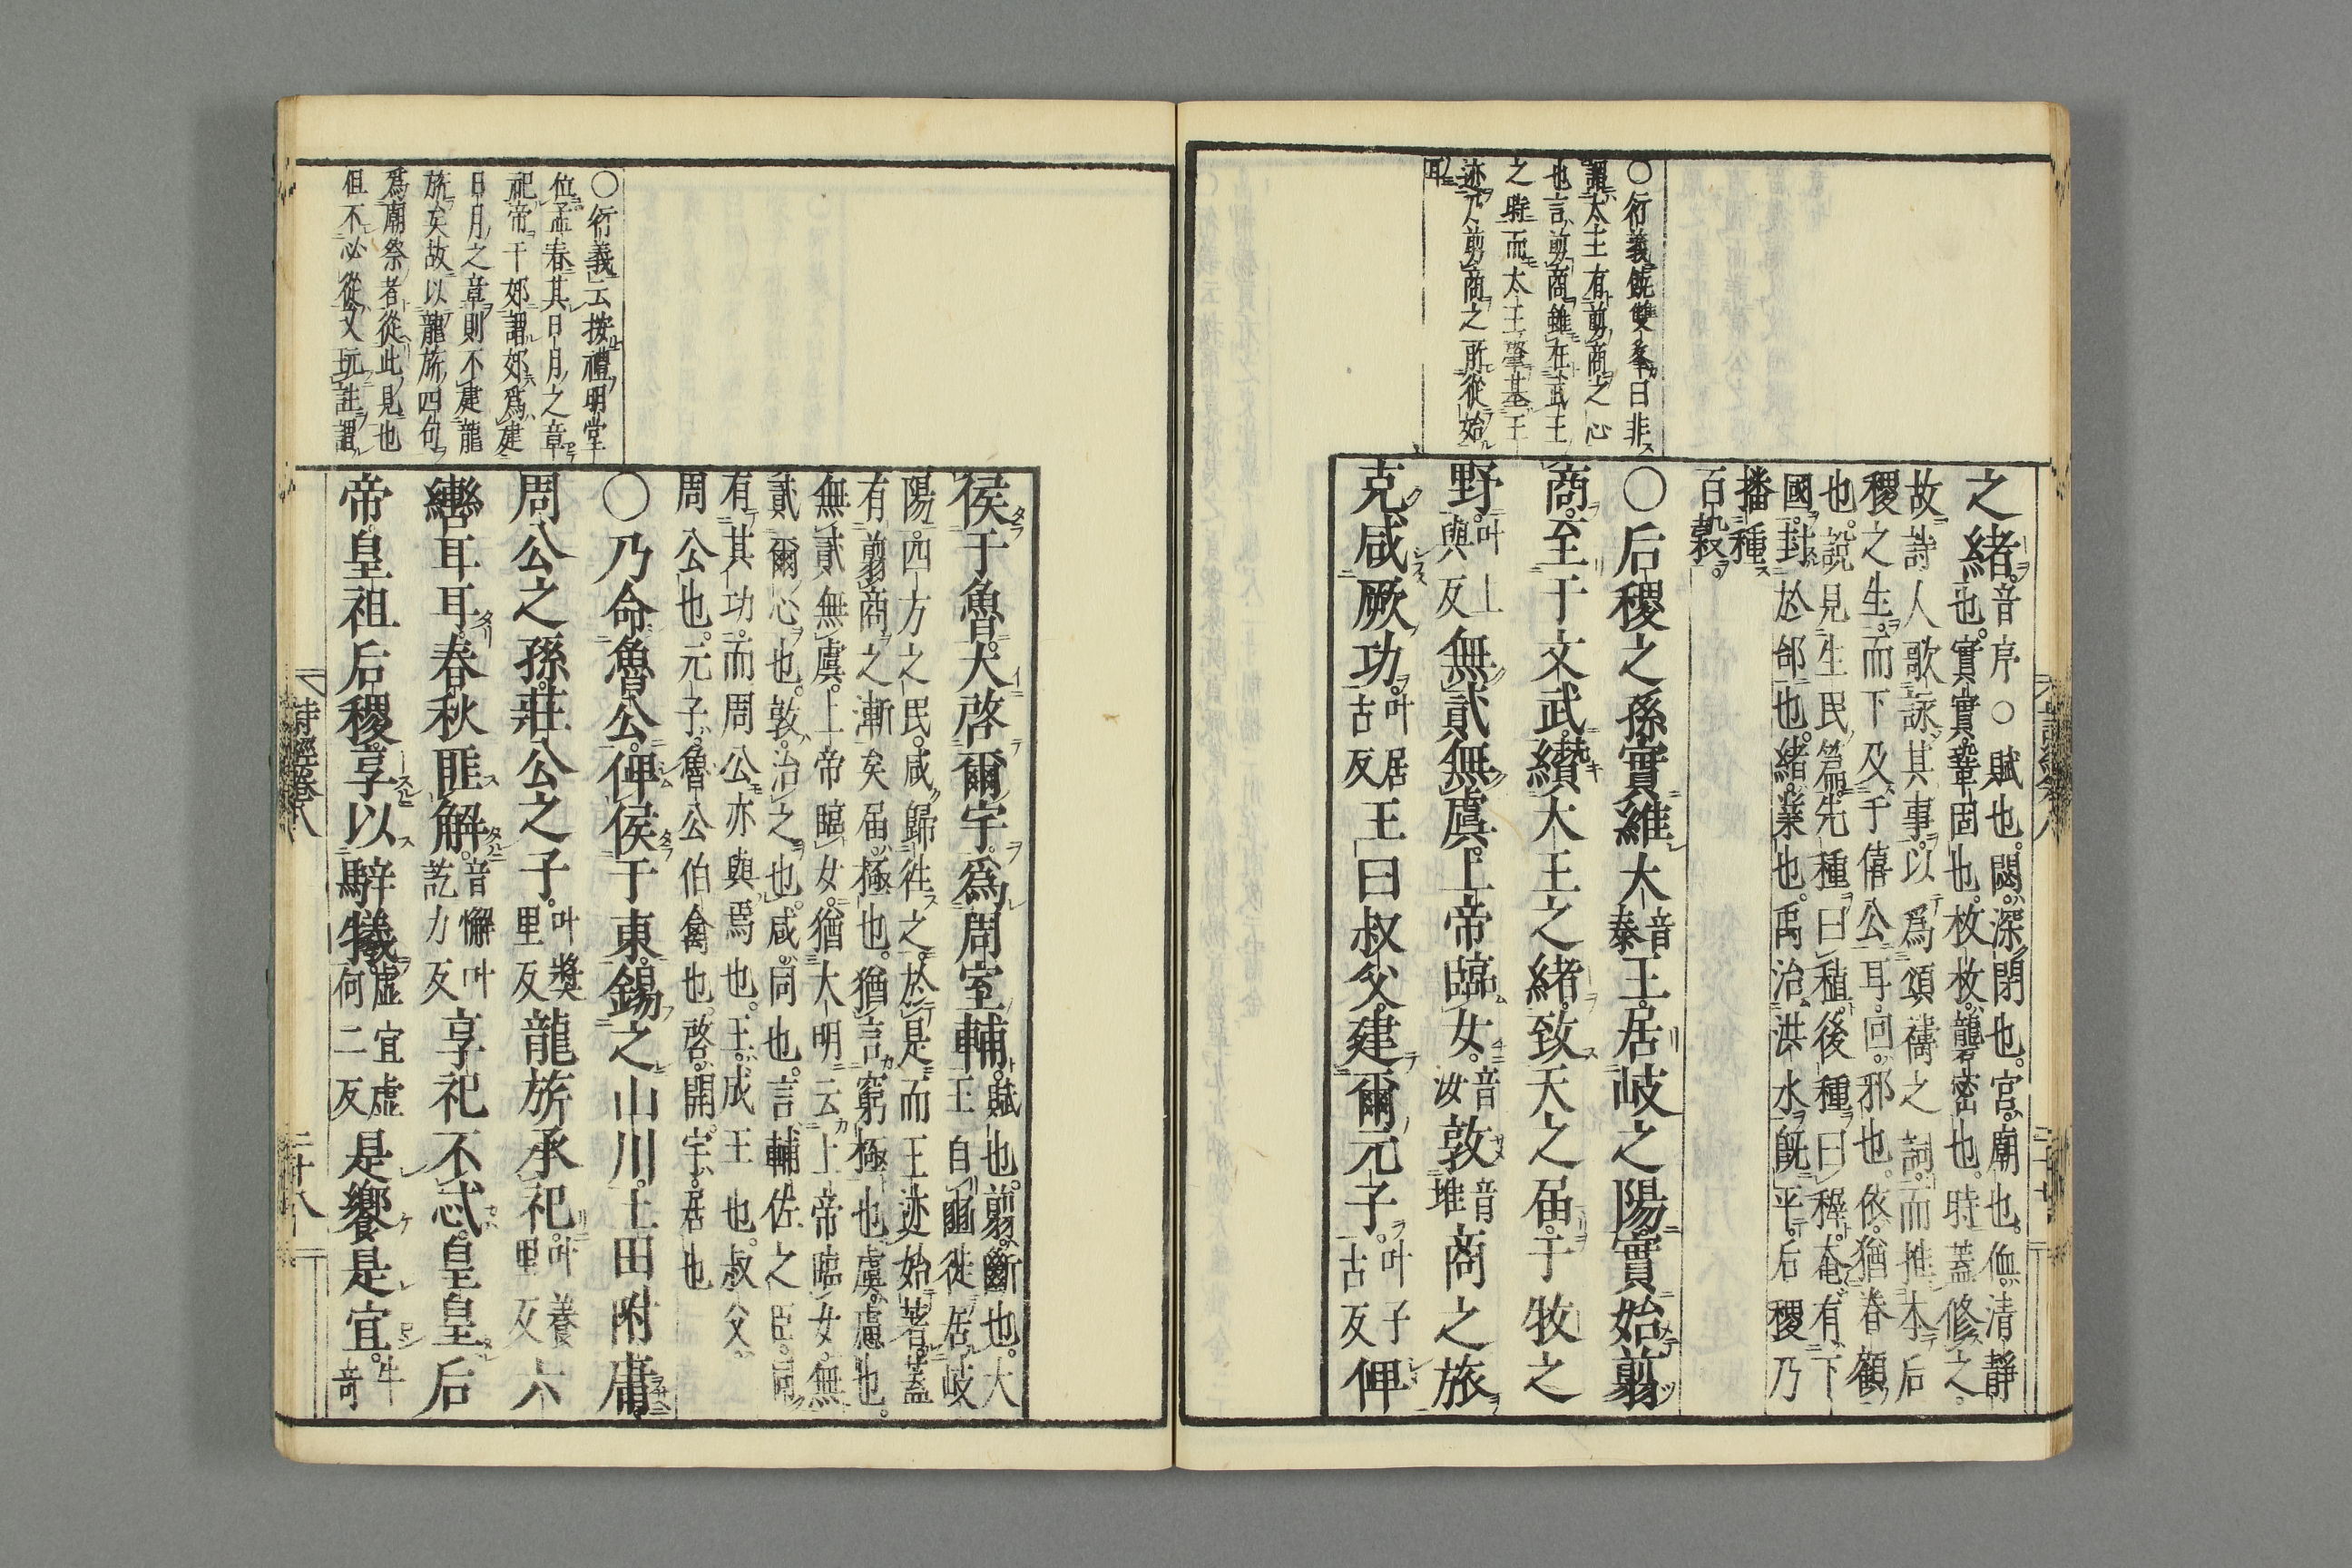 ○衍義饒雙峯曰非
謂太王有剪商之心
也言剪商雖在武王
之時而太王肇基王
迹乃剪商之所從始
耳
之緒。音序○賦也。閟。深閉也。宮。廟也。侐。清靜
也。實實。鞏固也。枚枚。礱密也。時蓋修之。
故詩人歌詠其事。以爲頌禱之詞。而推本后
稷之生。而下及于僖公耳。回。邪也。依。猶眷顧
也。說見生民篇。先種曰稙。後種曰穉。奄有下
國。封於邰也。緒。業也。禹治洪水既平。后稷乃
播種
百穀。
○后稷之孫。實維大音泰王。居岐之陽。實始翦
商。至于文武。纘大王之緒。致天之屆。于牧之
野。叶上與反無貳無虞。上帝臨女。音汝敦音堆商之旅。
克咸厥功。叶居古反王曰叔父。建爾元子。叶子古反俾
○衍義云按禮明堂
位孟春其日月之章
祀帝于郊謂郊爲建
日月之章則不建龍
旂矣故以龍旂四句
爲廟祭者從此見也
但不必從又玩註謂
侯于魯。大啓爾宇。爲周室輔。賦也。翦。斷也。大
王自豳徙居岐
陽。四方之民。咸歸往之。於是而王迹始著。蓋
有翦商之漸矣。屆。極也。猶言窮極也。虞。慮也。
無貳無虞。上帝臨女。猶大明云上帝臨女。無
貳爾心也。敦。治之也。咸。同也。言輔佐之臣。同
有其功。而周公亦與焉也。王。成王也。叔父。
周公也。元子。魯公伯禽也。啓。開。宇。居也
○乃命魯公。俾侯于東。錫之山川。土田附庸。
周公之孫。莊公之子。叶獎里反龍旂承祀。叶養里反六
轡耳耳。春秋匪解。音懈叶訖力反享祀不忒。皇皇后
帝。皇祖后稷。享以騂犧。虛宜虛何二反是饗是宜。牛奇
詩經卷八 二十八